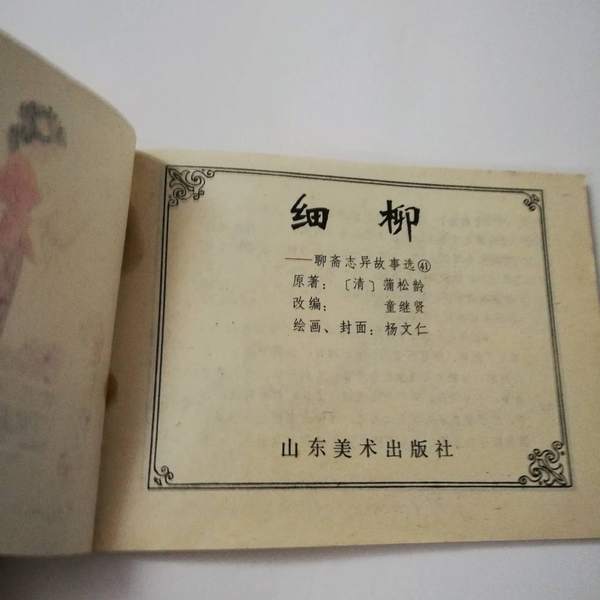 细柳
——聊斋志异故事选㊶
原著：〔清〕蒲松龄
改编：童继贤
绘画、封面：杨文仁
山东美术出版社